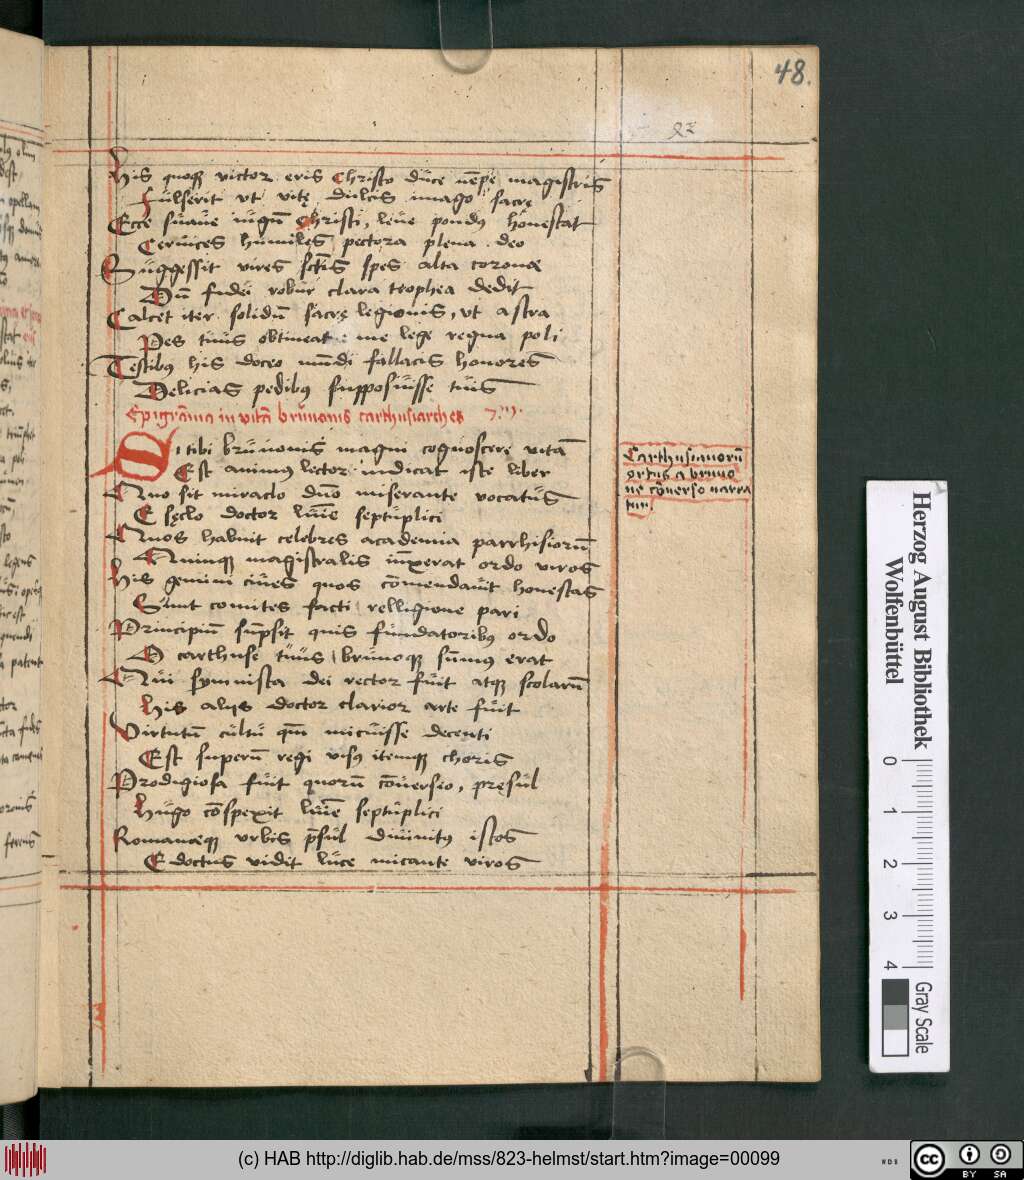 48.
His quoqꝫ victor eris Christo duce nẽpe magistris
Fulserit ut vitę dulcis imago sacrę
Ecce suaue iugũ Christi, leue pondꝰ honestat
Ceruices humiles pectora plena deo
Suggessit vires sctis spes alta coronæ
Dũ fidei robur clara trophea dedit
Calcet iter solidũ sacrę legionis, ut astra
Pes tuus obtineat: me lege regna poli
Testibꝰ his doceo mũdi fallacis honores
Delicias pedibꝰ supposuisse tuis
Epigrãma in vitã brunonis carthusiarches
Si tibi brunonis magni cognoscere vitã
Est animꝰ lector indicat iste liber
Quo sit miraclo dño miserante vocatus
E sęclo doctor lumĩe septuplici
Quos habuit celebres academia parrhisiorũ
Quinqꝫ magistralis iũxerat ordo viros
His gemini ciues quos cõmendauit honestas
Sunt comites facti relligione pari
Principiũ sũpsit quis fundatoribꝰ ordo
O carthuse tuus brunoqꝫ sũmus erat
Qui symmista dei rector fuit atqꝫ scolarũ
His alijs doctor clarior arte fuit
Virtutũ cultu qm̃ micuisse decenti
Est superũ regi visꝰ itemqꝫ choris
Prodigiosa fuit quorũ cõuersio, pręsul
Hugo cõspexit lumĩe septuplici
Romanæqꝫ urbis p̃sul diuinitꝰ istos
Edoctus vidit luce micante viros
Carthusianorũ
ortus a bruno
ne cõuerso narra
tur.
Herzog August Bibliothek
Wolfenbüttel
0 1 2 3 4
Gray Scale
(c) HAB http://diglib.hab.de/mss/823-helmst/start.htm?image=00099
WDB
cc
BY SA